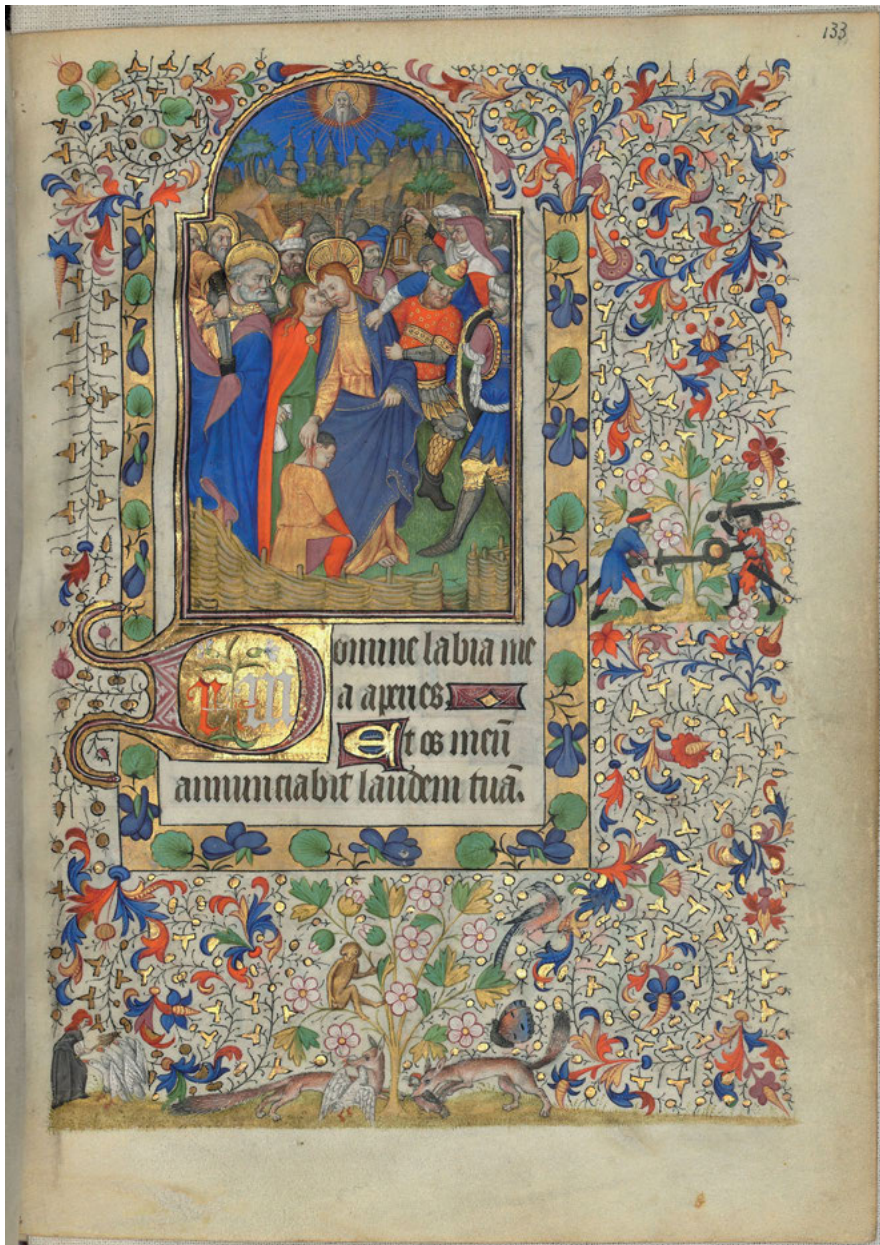 133
Domine labia me
a aperies.
Et os meū
annunciabit laudem tuā.